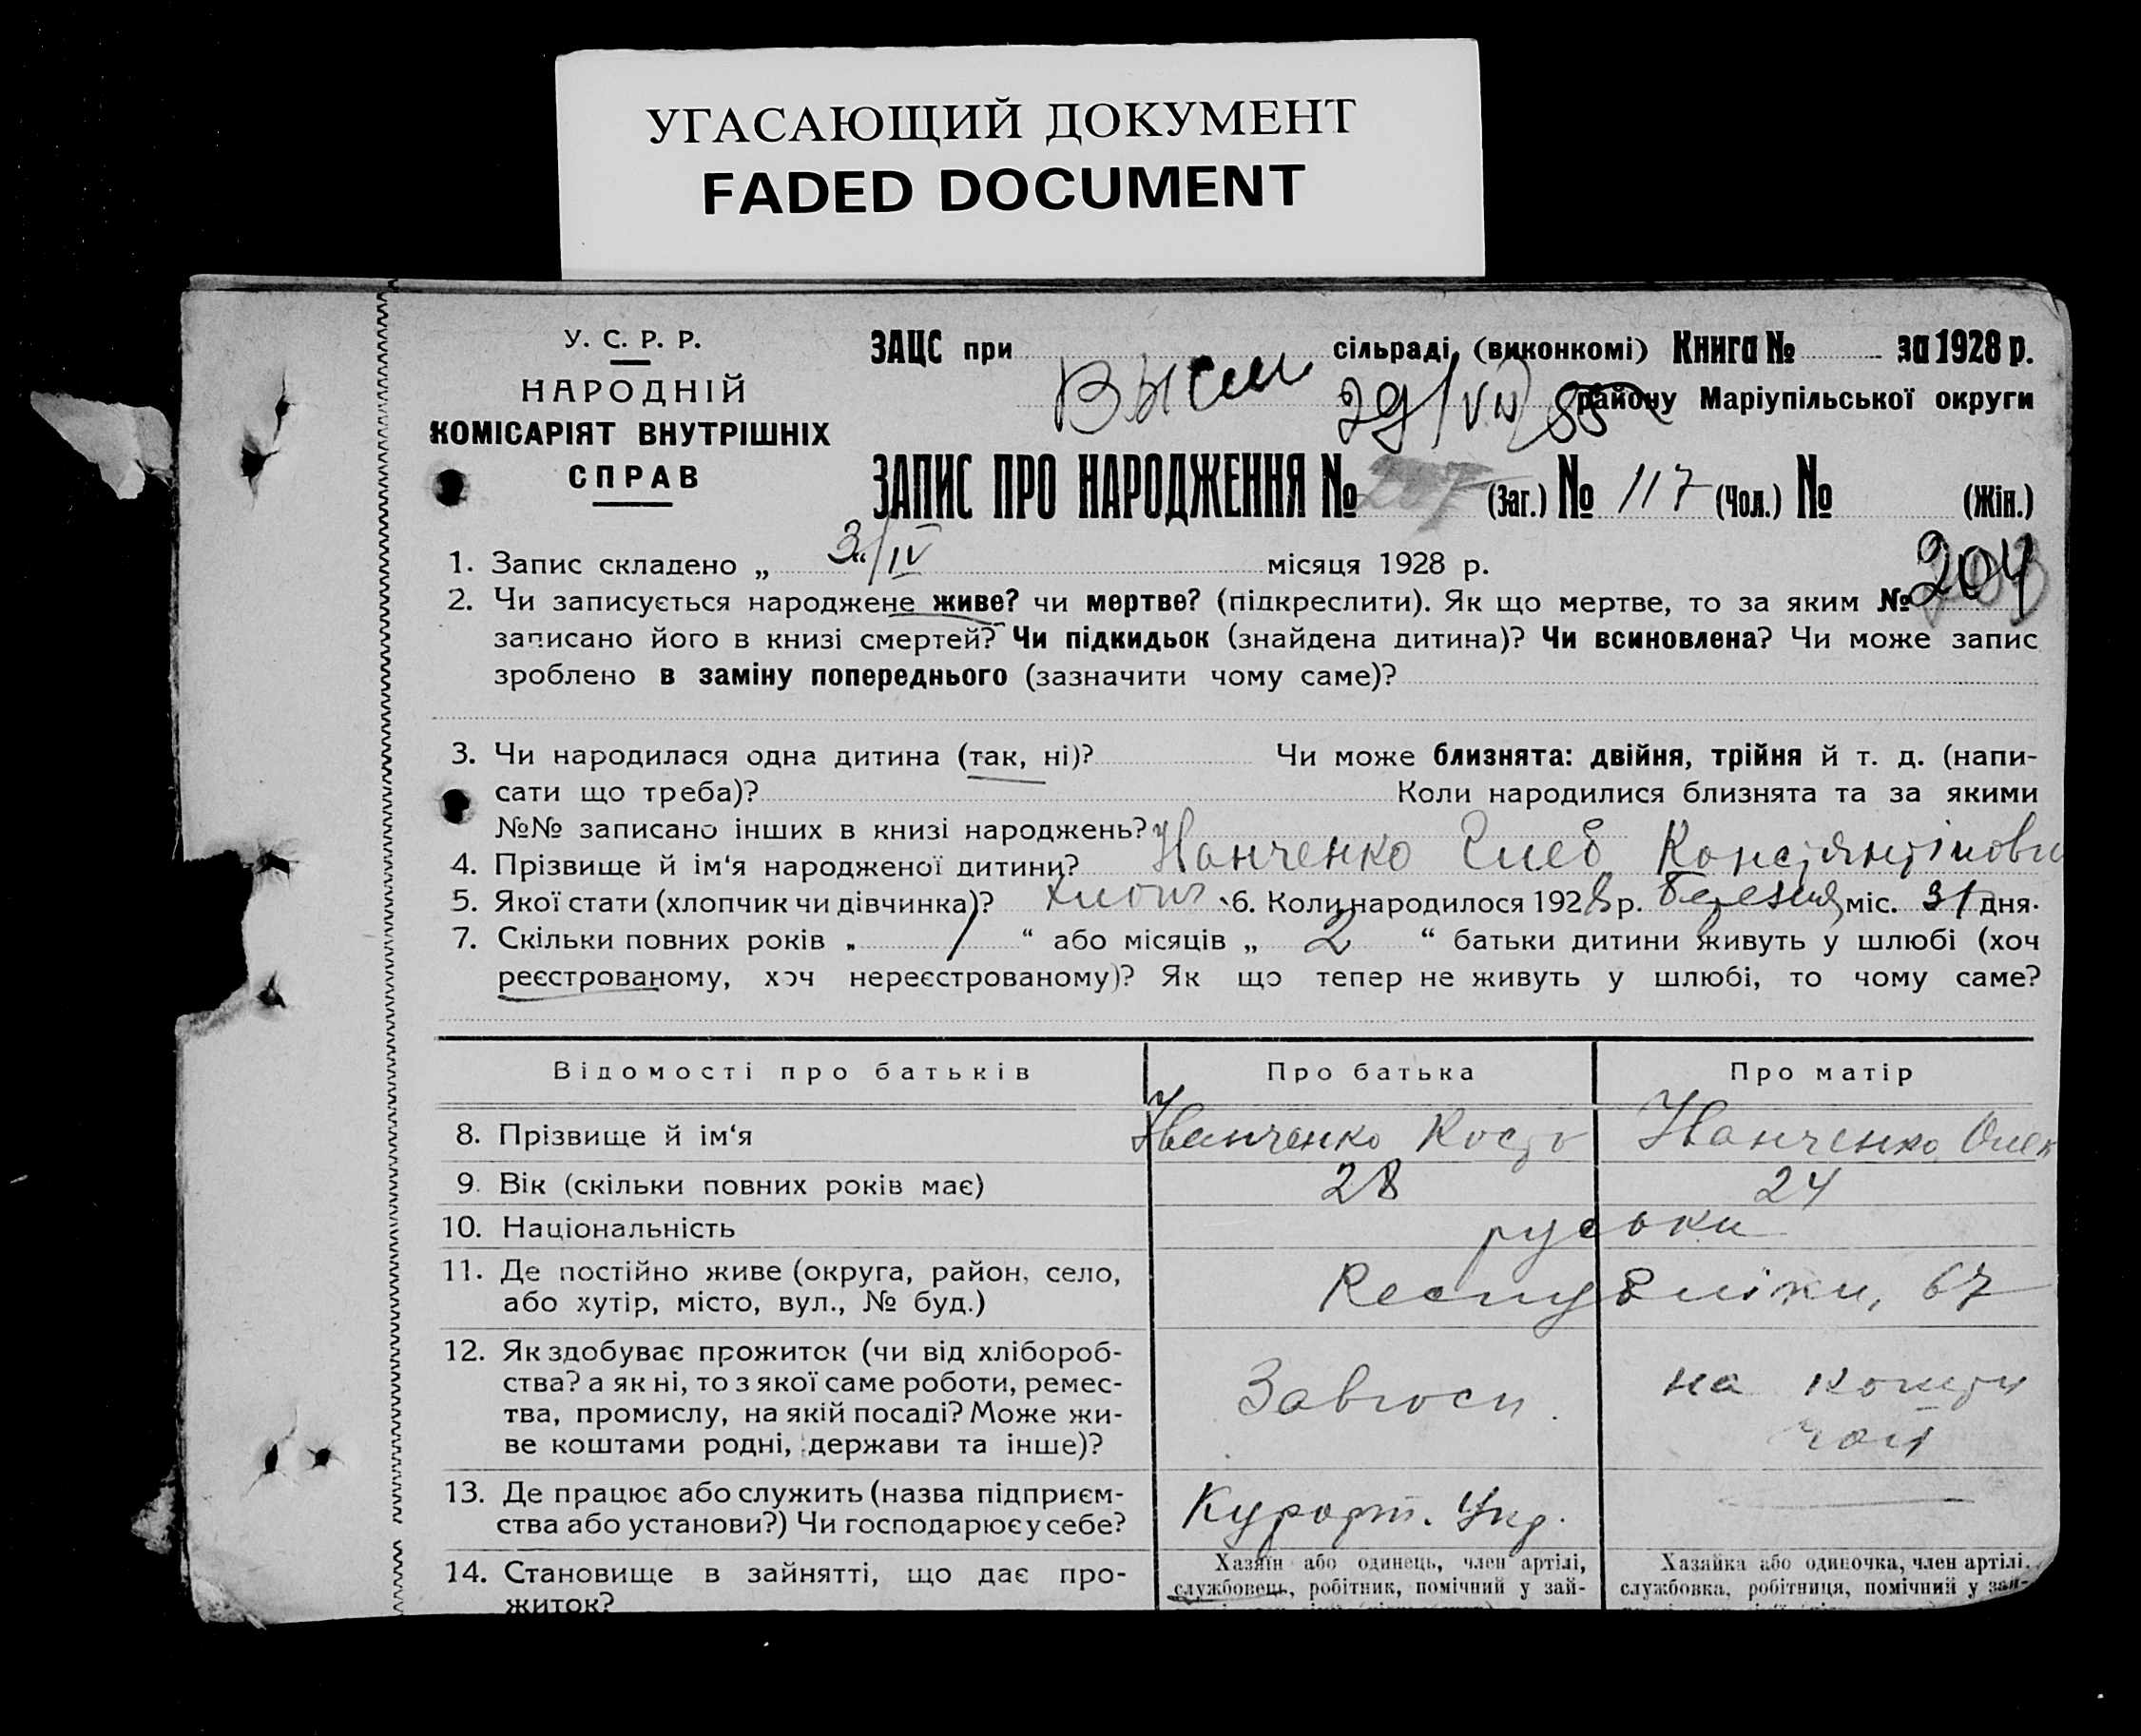 УГАСАЮЩИЙ ДОКУМЕНТ
FADED DOCUMENT
У. С. Р. Р.
НАРОДНІЙ
КОМІСАРІЯТ ВНУТРІШНІХ
СПРАВ
ЗАЦС при сільраді, (виконкомі) Книга № за 1928 р.
29/VII 88 району Маріупільської округи
ЗАПИС ПРО НАРОДЖЕННЯ № (Заг.) № 117 (Чол.) № (Жін.)
1. Запис складено „ 3/IV “ місяця 1928 р.
204
2. Чи записується народжене живе? чи мертве? (підкреслити). Як що мертве, то за яким №
записано його в книзі смертей? Чи підкидьок (знайдена дитина)? Чи всиновлена? Чи може запис
зроблено в заміну попереднього (зазначити чому саме)?
3. Чи народилася одна дитина (так, ні)? Чи може близнята: двійня, трійня й т. д. (напи-
сати що треба)? Коли народилися близнята та за якими
№№ записано інших в книзі народжень?
4. Прізвище й ім‘я народженої дитини? Глеб
5. Якої стати (хлопчик чи дівчинка)? хлоп 6. Коли народилося 1928 р. березня міс. 31 дня.
7. Скільки повних років „ 1 “ або місяців „ 2 “ батьки дитини живуть у шлюбі (хоч
реєстрованому, хоч нереєстрованому)? Як що тепер не живуть у шлюбі, то чому саме?
Відомості про батьків Про батька Про матір
8. Прізвище й ім‘я Іванченко Кост Іванченко Олек
9. Вік (скільки повних років має) 28 24
10. Національність руськи
11. Де постійно живе (округа, район, село,
або хутір, місто, вул., № буд.) Республіки, 67
12. Як здобуває прожиток (чи від хлібороб-
ства? а як ні, то з якої саме роботи, ремес-
тва, промислу, на якій посаді? Може жи-
ве коштами родні, держави та інше)? Завгосп. на кошти
13. Де працює або служить (назва підприєм-
ства або установи?) Чи господарює у себе? Курорт. Упр.
14. Становище в зайнятті, що дає про-
житок?
Хазяїн або одинець, член артілі,
службовець, робітник, помічний у зай-
Хазяйка або одиночка, член артілі,
службовка, робітниця, помічний у зай-